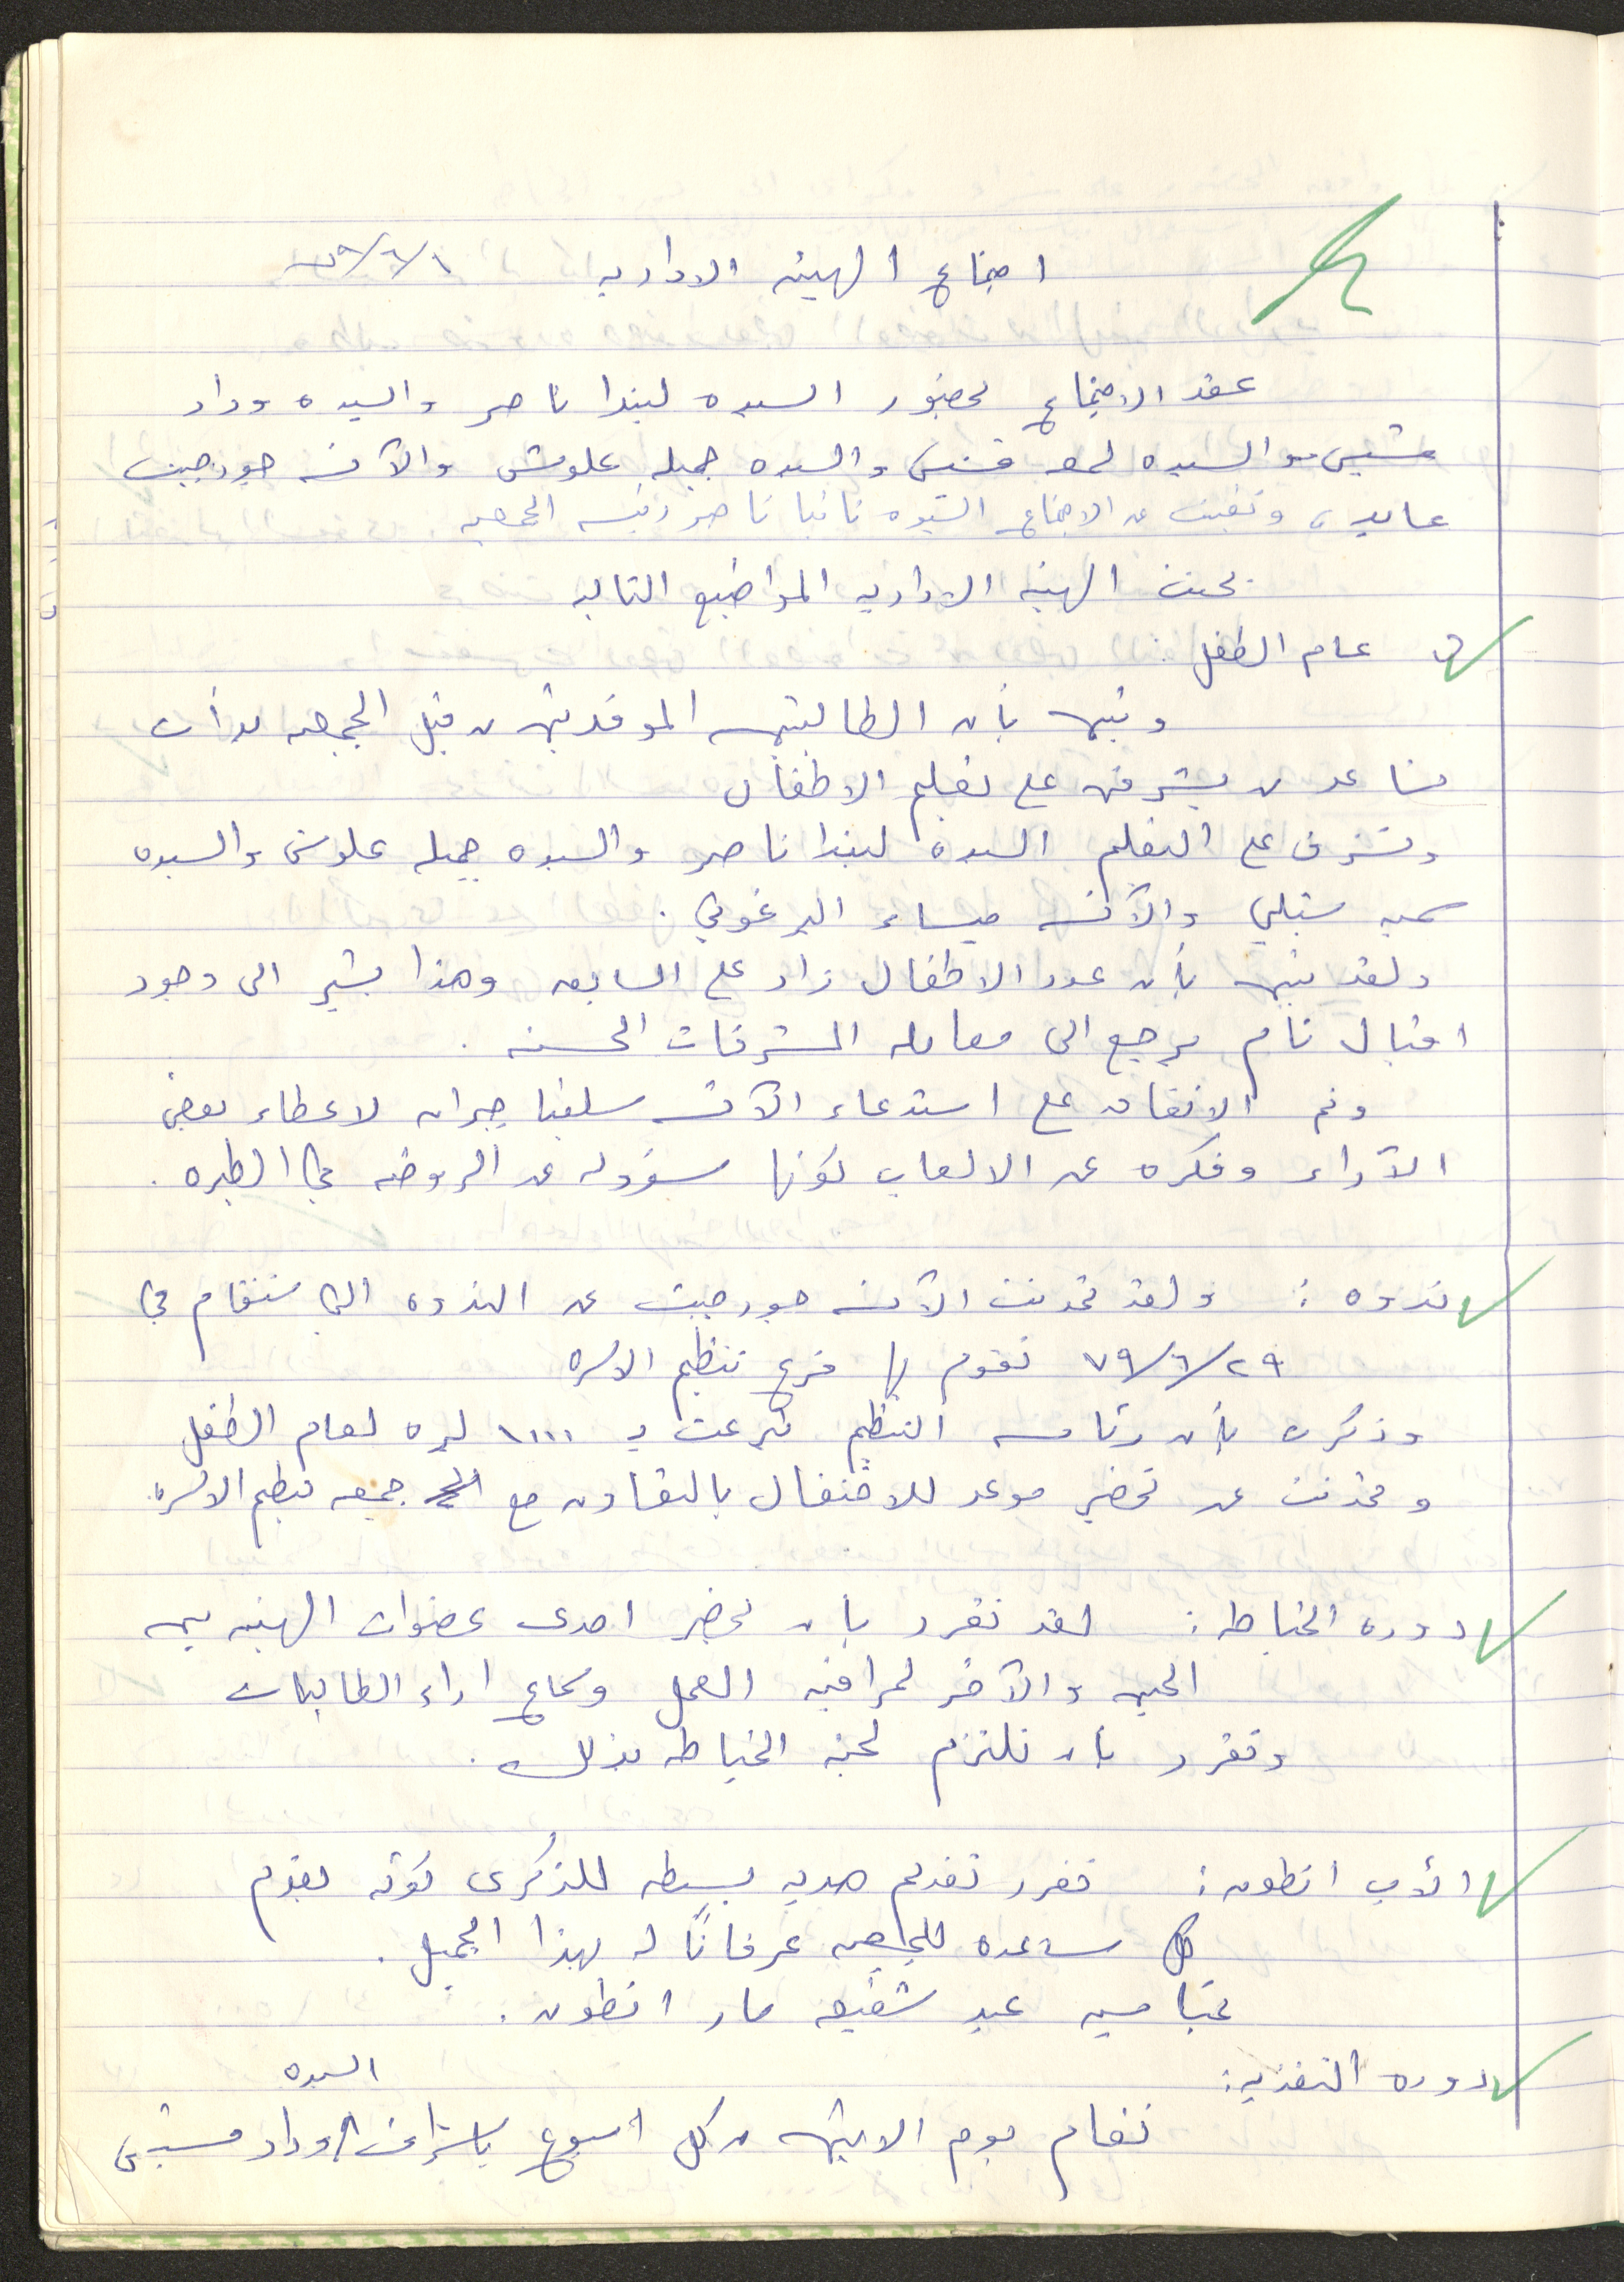 اجتماع الهيئه الاداريه ٧٩/٦/١
عقد الاجتماع بحضور السيده ليندا ناصر والسيده وداد
مشبش والسيده لمعه قسيس والسيده جميله علوش والآنسه جورجيت
عابدي وتغيبت عن الاجتماع السيده تانيا ناصر رئيسه الجمعيه .
بحثت الهيئه الاداريه المواضيع التاليه
عام الطفل :
وتبين بأن الطالبتين الموفدتين من قبل الجمعيه بدأت
يشرفن على تعليم الاطفال
وتشرف على التعليم السيده ليندا ناصر والسيده جميله علوش والسيده
سميه ستبلي والآنسه ميساء البرغوثي .
ولقد تبين بأن عدد الاطفال زاد على السابق وهذا يشير الى وجود
اقبال تام يرجع الى معامله المشرفات الحسنه .
وتم الاتفاق على استدعاء الآنسه سلفيا جبران لاعطاء بعض
الآراء وفكره عن الالعاب لكونها مسؤوله عن الروضه في الطيره .
ندوه : ولقد تحدثت الآنسه جورجيت عن الندوه التي ستقام في
٧٩/٦/٢٩ تقوم بها فرع تنظيم الاسره
وذكرت بأن رئاسه التنظيم تبرعت بـ ١٠٠٠ ليره لعام الطفل
وتحدثت عن تحضير موعد للاحتفال بالتعاون مع جمعيه تنظيم الاسره.
دوره الخياطه : لقد تقرر بان تحضر احدى عضوات الهيئه بين
الحين والآخر لمراقبه العمل وسماع اراء الطالبات
وتقرر بان تلتزم لجنه الخياطه بذلك .
الأب انطون : تقرر تقديم هديه بسيطه للذكرى كونه يقدم
كل مساعده للجمعيه عرفانًا له بهذا الجميل .
بمناسبه عيد شفيعه مار انطون .
دوره التغذيه :
تقام يوم الاثنين من كل اسبوع باشراف السيده وداد مشبش